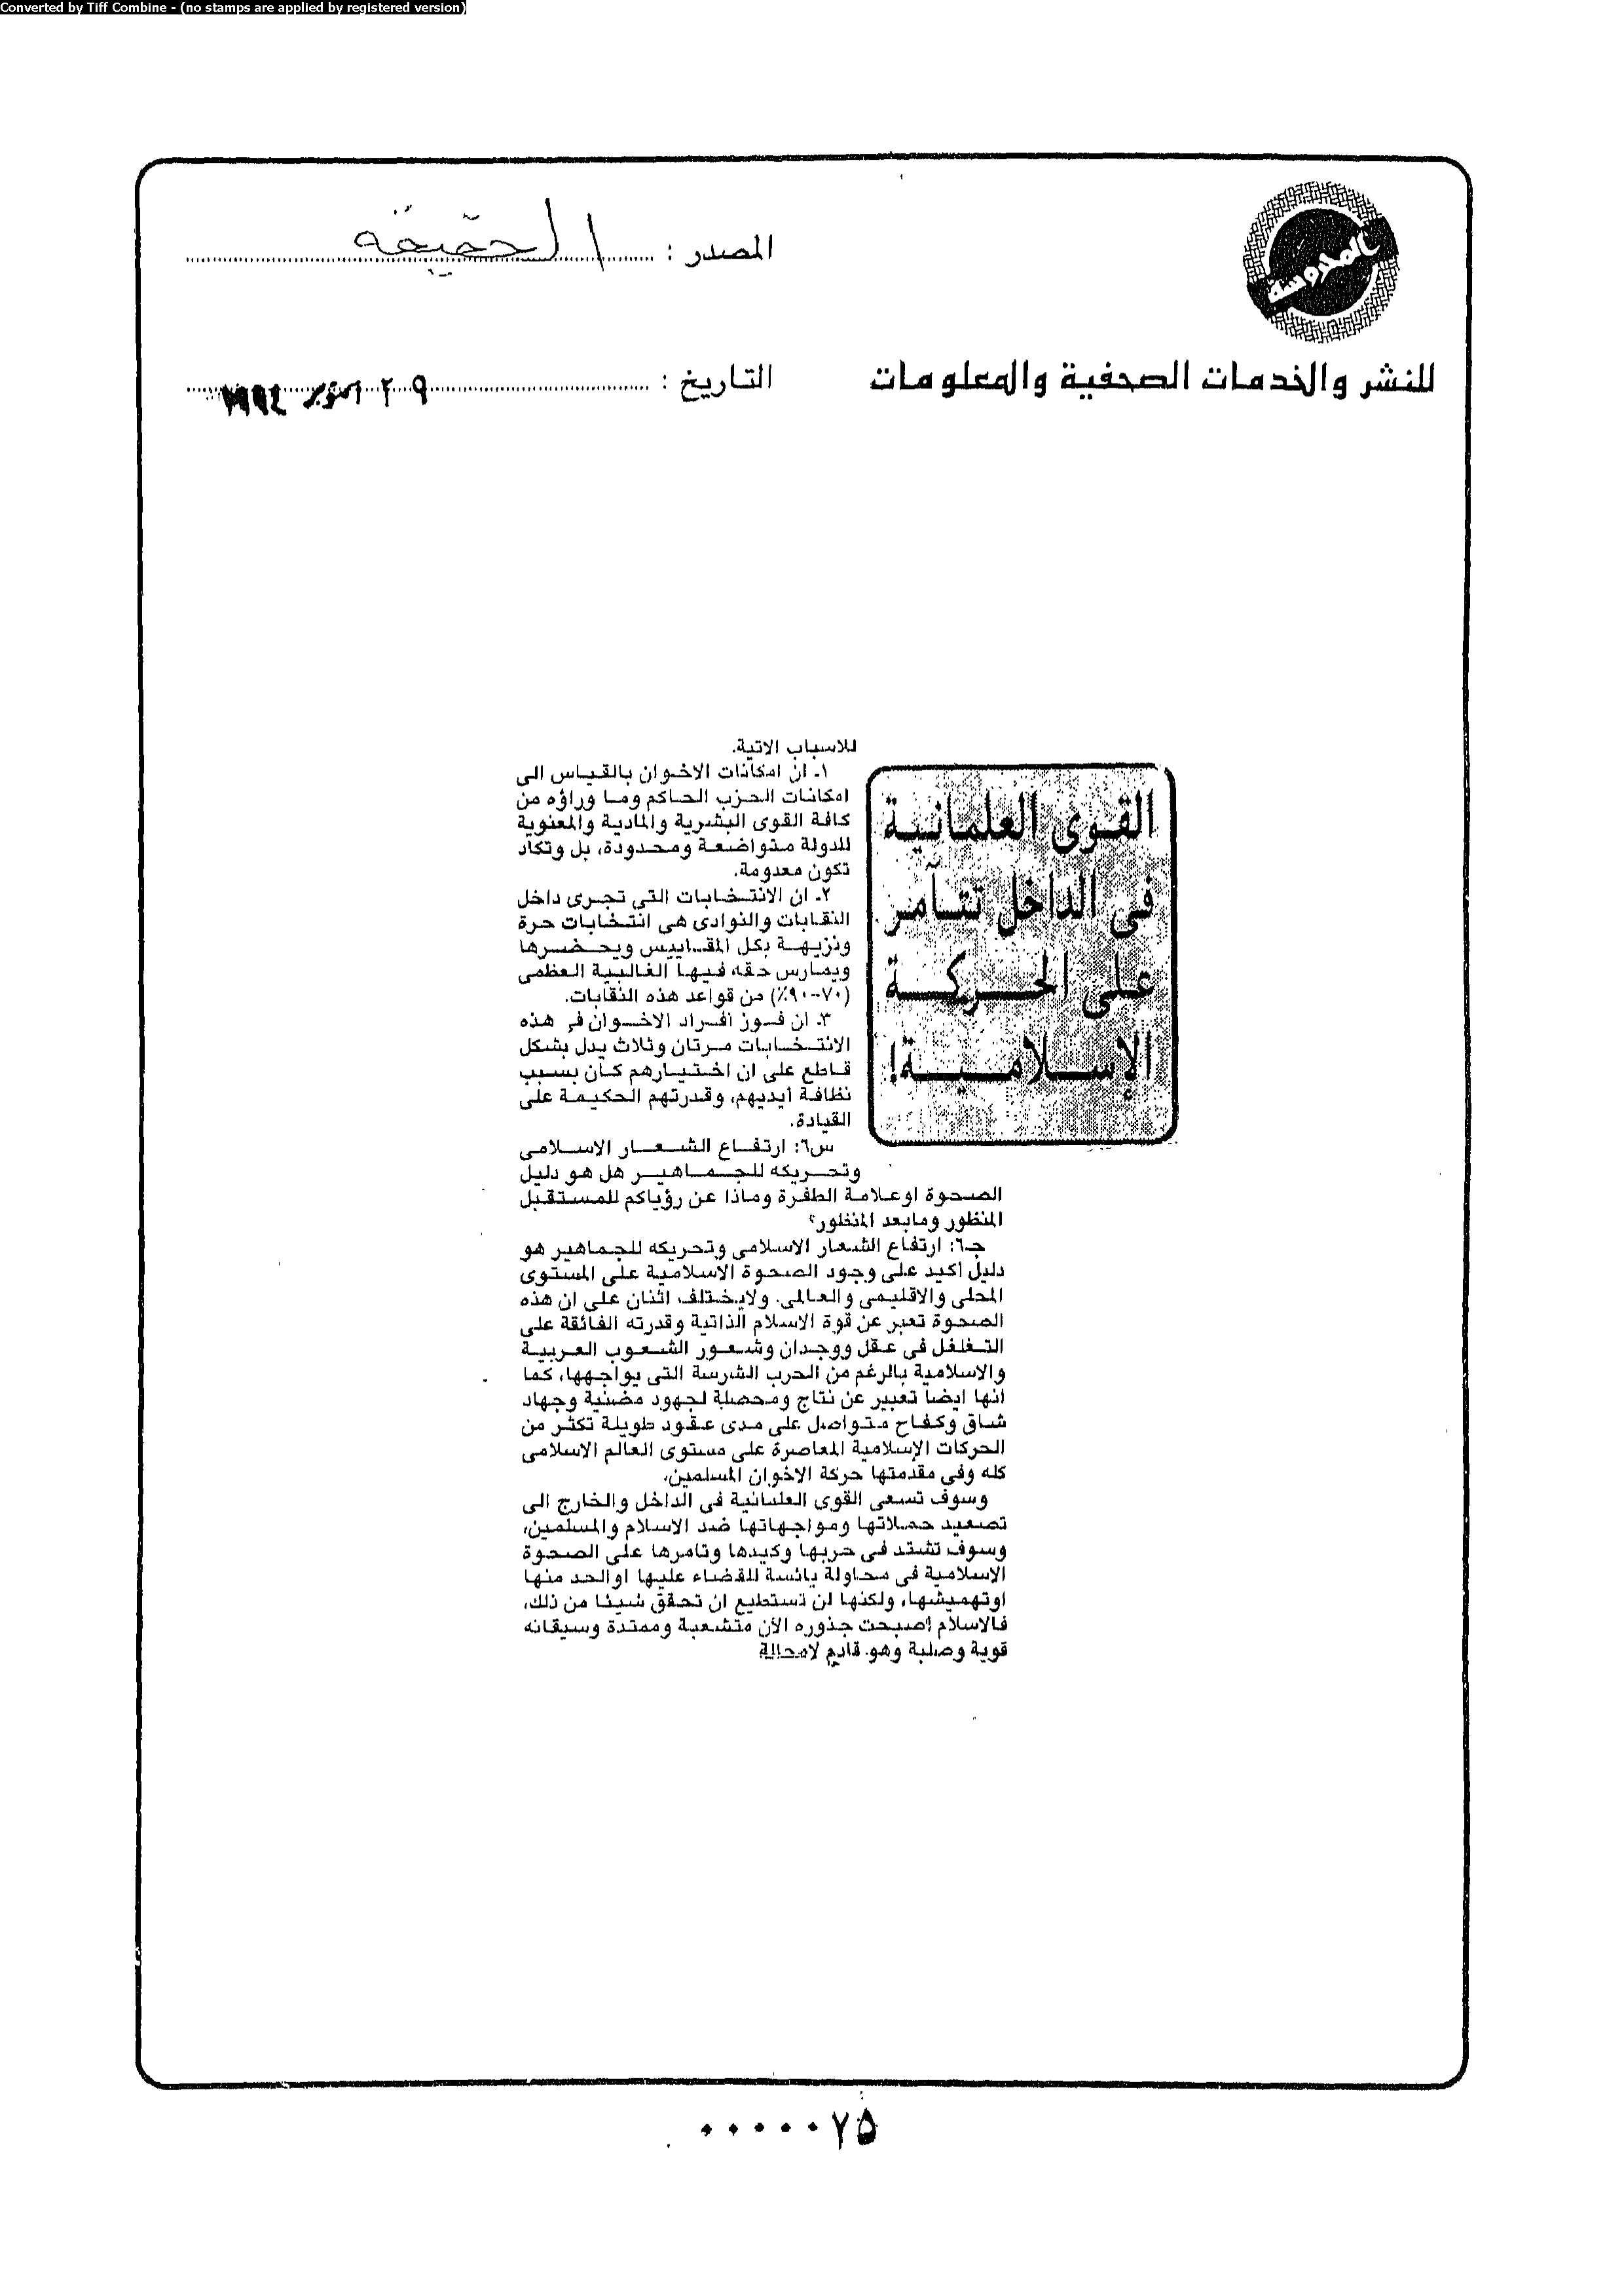 Converted by Tiff Combine - (no stamps are applied by registered version)
المحروسة
للنشر والخدمات الصحفية والمعلومات
المصدر : الحقيقة
التاريخ : ٢٩ اكتوبر ١٩٩٤
القوى العلمانية
فى الداخل تتآمر
على الحركة
الإسلامية!
للاسباب الاتية.
١ـ ان امكانات الاخوان بالقياس الى
امكانات الحزب الحاكم وما وراؤه من
كافة القوى البشرية والمادية والمعنوية
للدولة متواضعة ومحدودة، بل وتكاد
تكون معدومة.
٢ـ ان الانتخابات التى تجرى داخل
النقابات والنوادى هى انتخابات حرة
ونزيهة بكل المقاييس ويحضرها
ويمارس حقه فيها الغالبية العظمى
(٧٠-٩٠٪) من قواعد هذه النقابات.
٣ـ ان فوز افراد الاخوان فى هذه
الانتخابات مرتان وثلاث يدل بشكل
قاطع على ان اختيارهم كان بسبب
نظافة أيديهم، وقدرتهم الحكيمة على
القيادة.
س٦: ارتفاع الشعار الاسلامى
وتحريكه للجماهير هل هو دليل
الصحوة اوعلامة الطفرة وماذا عن رؤياكم للمستقبل
المنظور ومابعد المنظور؟
جـ٦: ارتفاع الشعار الاسلامى وتحريكه للجماهير هو
دليل أكيد على وجود الصحوة الاسلامية على المستوى
المحلى والاقليمى والعالمى. ولايختلف اثنان على ان هذه
الصحوة تعبر عن قوة الاسلام الذاتية وقدرته الفائقة على
التغلغل فى عقل ووجدان وشعور الشعوب العربية
والاسلامية بالرغم من الحرب الشرسة التى يواجهها، كما
انها ايضا تعبير عن نتاج ومحصلة لجهود مضنية وجهاد
شاق وكفاح متواصل على مدى عقود طويلة تكثر من
الحركات الإسلامية المعاصرة على مستوى العالم الاسلامى
كله وفى مقدمتها حركة الاخوان المسلمين.
وسوف تسعى القوى العلمانية فى الداخل والخارج الى
تصعيد حملاتها ومواجهاتها ضد الاسلام والمسلمين،
وسوف تشتد فى حربها وكيدها وتامرها على الصحوة
الإسلامية فى محاولة يائسة للقضاء عليها اوالحد منها
اوتهميشها، ولكنها لن تستطيع ان تحقق شيئا من ذلك،
فالاسلام أصبحت جذوره الآن متشعبة وممتدة وسيقانه
قوية وصلبة وهو قادم لامحالة
٠٠٠٠٠٧٥